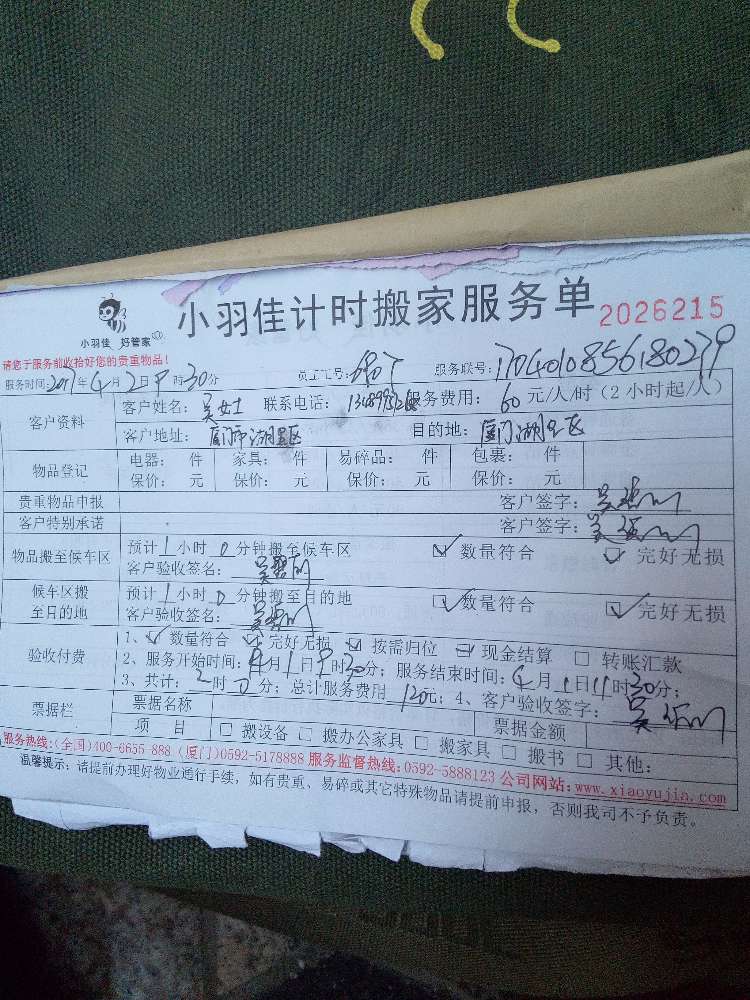 小羽佳计时搬家服务单 2026215
小羽佳 好管家
请您于服务前收拾好您的贵重物品!
服务时间:2017年4月2日9时30分 员工汇号: 服务联号:1704010856180279
客户资料 客户姓名:吴女士 联系电话: 服务费用:60元/人/时(2小时起/人)
客户地址:厦门市湖里区 目的地:厦门湖里区
物品登记 电器: 件 家具: 件 易碎品: 件 包裹: 件
保价: 元 保价: 元 保价: 元 保价: 元
贵重物品申报 客户签字:吴
客户特别承诺 客户签字:吴
物品搬至候车区 预计1小时0分钟搬至候车区 ☑数量符合 ☑完好无损
客户验收签名:吴
候车区搬至目的地 预计1小时0分钟搬至目的地 ☑数量符合 ☑完好无损
客户验收签名:吴
验收付费 1、☑数量符合 ☑完好无损 ☑按需归位 ☑现金结算 □转账汇款
2、服务开始时间:4月1日9时30分;服务结束时间:4月1日11时30分;
3、共计:2时0分;总计服务费用120元;4、客户验收签字:吴
票据栏 票据名称 票据金额
项目 □搬设备 □搬办公家具 □搬家具 □搬书 □其他:
服务热线:(全国)400-6655-888 (厦门)0592-5178888 服务监督热线:0592-5888123 公司网站:www.xiaoyujin.com
温馨提示:请提前办理好物业通行手续,如有贵重、易碎或其它特殊物品请提前申报,否则我司不予负责。